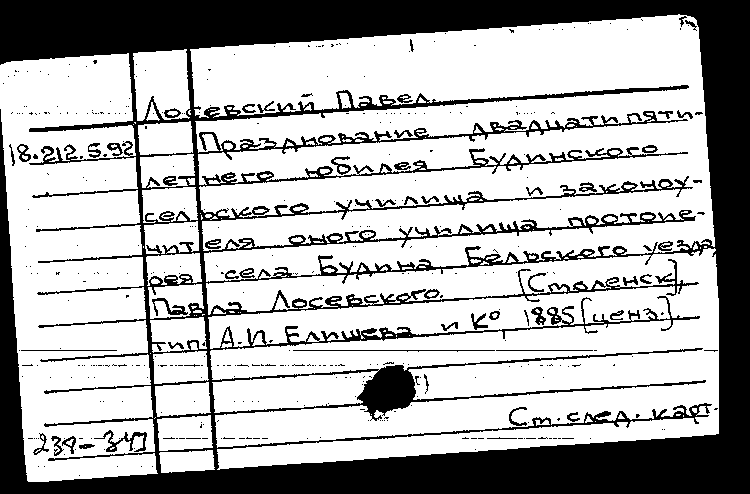 Лосевский, Павел.
18.212.5.92 Празднование двадцатипяти-
летнего юбилея Будинского
сельского училища и законоу-
чителя оного училища, протоие-
рея села Будина, Бельского уезда,
Павла Лосевского. [Смоленск],
тип. А.И. Елишева и К°, 1885 [ценз.].
Ст. след. карт.